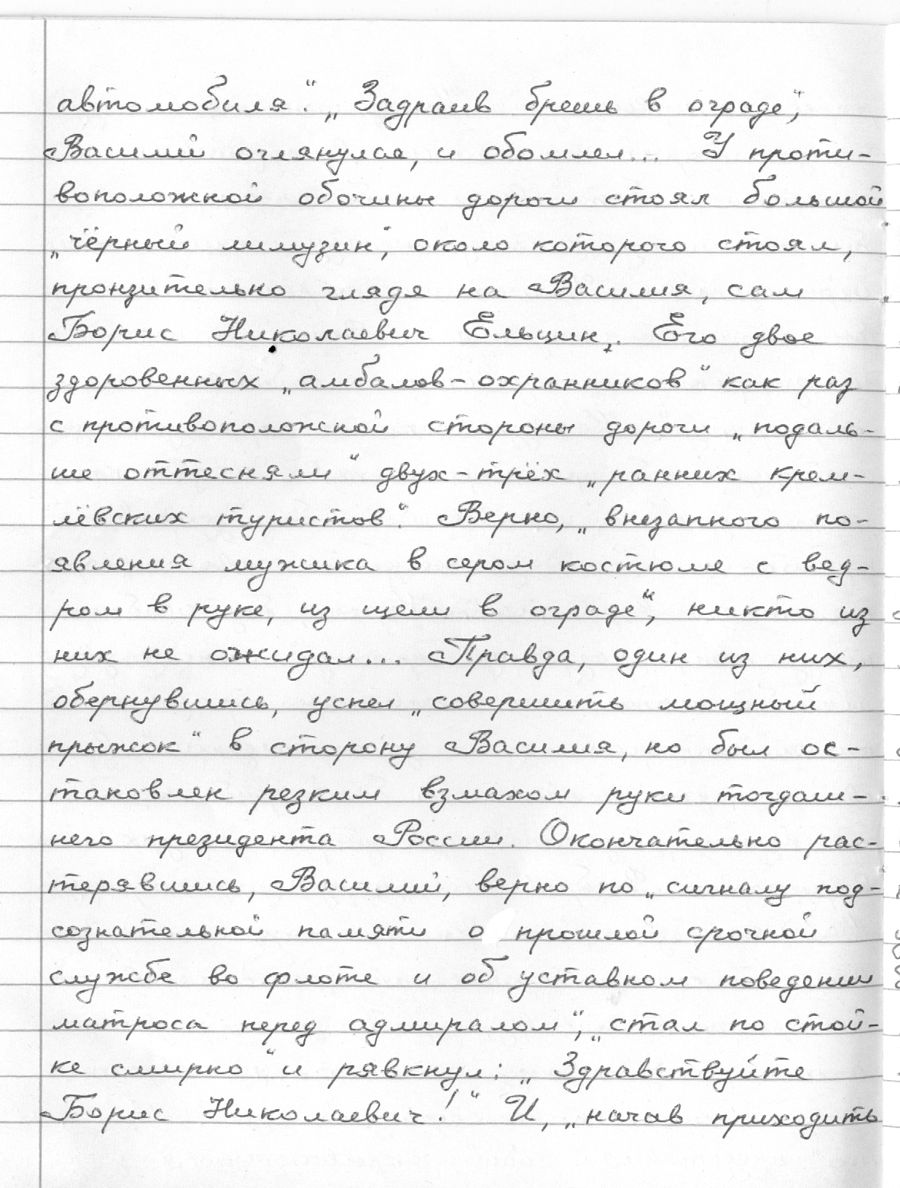 автомобиля". „Задраив брешь в ограде",
Василий оглянулся, и обомлел... У проти-
воположной обочины дороги стоял большой
„чёрный лимузин", около которого стоял,
пронзительно глядя на Василия, сам
Борис Николаевич Ельцин. Его двое
здоровенных „амбалов-охранников" как раз
с противоположной стороны дороги „подаль-
ше оттесняли" двух-трёх „ранних крем-
лёвских туристов". Верно, „внезапного по-
явления мужика в сером костюме с вед-
ром в руке, из щели в ограде", никто из
них не ожидал... Правда, один из них,
обернувшись, успел „совершить мощный
прыжок" в сторону Василия, но был ос-
тановлен резким взмахом руки тогдаш-
него президента России. Окончательно рас-
терявшись, Василий, верно по „сигналу под-
сознательной памяти о прошлой срочной
службе во флоте и об уставном поведении
матроса перед адмиралом", „стал по стой-
ке смирно" и рявкнул: „Здравствуйте
Борис Николаевич!" И, „начав приходить